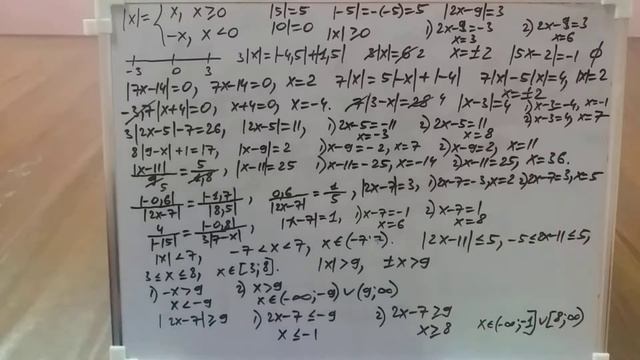 |x|={ x, x≥0   |5|=5   |-5|=-(-5)=5   |2x-9|=3
-x, x<0   |0|=0   |x|≥0   1) 2x-9=-3   2) 2x-9=3
x=3   x=6
-3   0   3   3|x|=|-4,5|+|1,5|   3|x|=6 2   x=±2   |5x-2|=-1   ∅
|7x-14|=0,   7x-14=0,   x=2   7|x|=5|-x|+|-4|   7|x|-5|x|=4,   |x|=2
x=±2
-3,7|x+4|=0,   x+4=0,   x=-4.   7|3-x|=28 4   |x-3|=4   1) x-3=-4, x=-1
2) x-3=4, x=7
3|2x-5|-7=26,   |2x-5|=11,   1) 2x-5=-11   2) 2x-5=11
x=-3   x=8
8|9-x|+1=17,   |x-9|=2   1) x-9=-2, x=7   2) x-9=2, x=11
|x-11|/9 = 5/1,8   5   |x-11|=25   1) x-11=-25, x=-14   2) x-11=25, x=36.
|-0,6|/|2x-7| = |-1,7|/|8,5| ,   0,6/|2x-7| = 1/5 ,   |2x-7|=3,   1) 2x-7=-3, x=2   2) 2x-7=3, x=5
4/|-15| = |-0,8|/3|7-x| ,   |x-7|=1,   1) x-7=-1   2) x-7=1
x=6   x=8
|x|<7,   -7<x<7,   x∈(-7;7).   |2x-11|≤5,   -5≤2x-11≤5,
3≤x≤8,   x∈[3;8].   |x|>9,   ±x>9
1) -x>9   2) x>9
x<-9   x∈(-∞;-9)∪(9;∞)
|2x-7|≥9   1) 2x-7≤-9   2) 2x-7≥9   x∈(-∞;-1]∪[8;∞)
x≤-1   x≥8